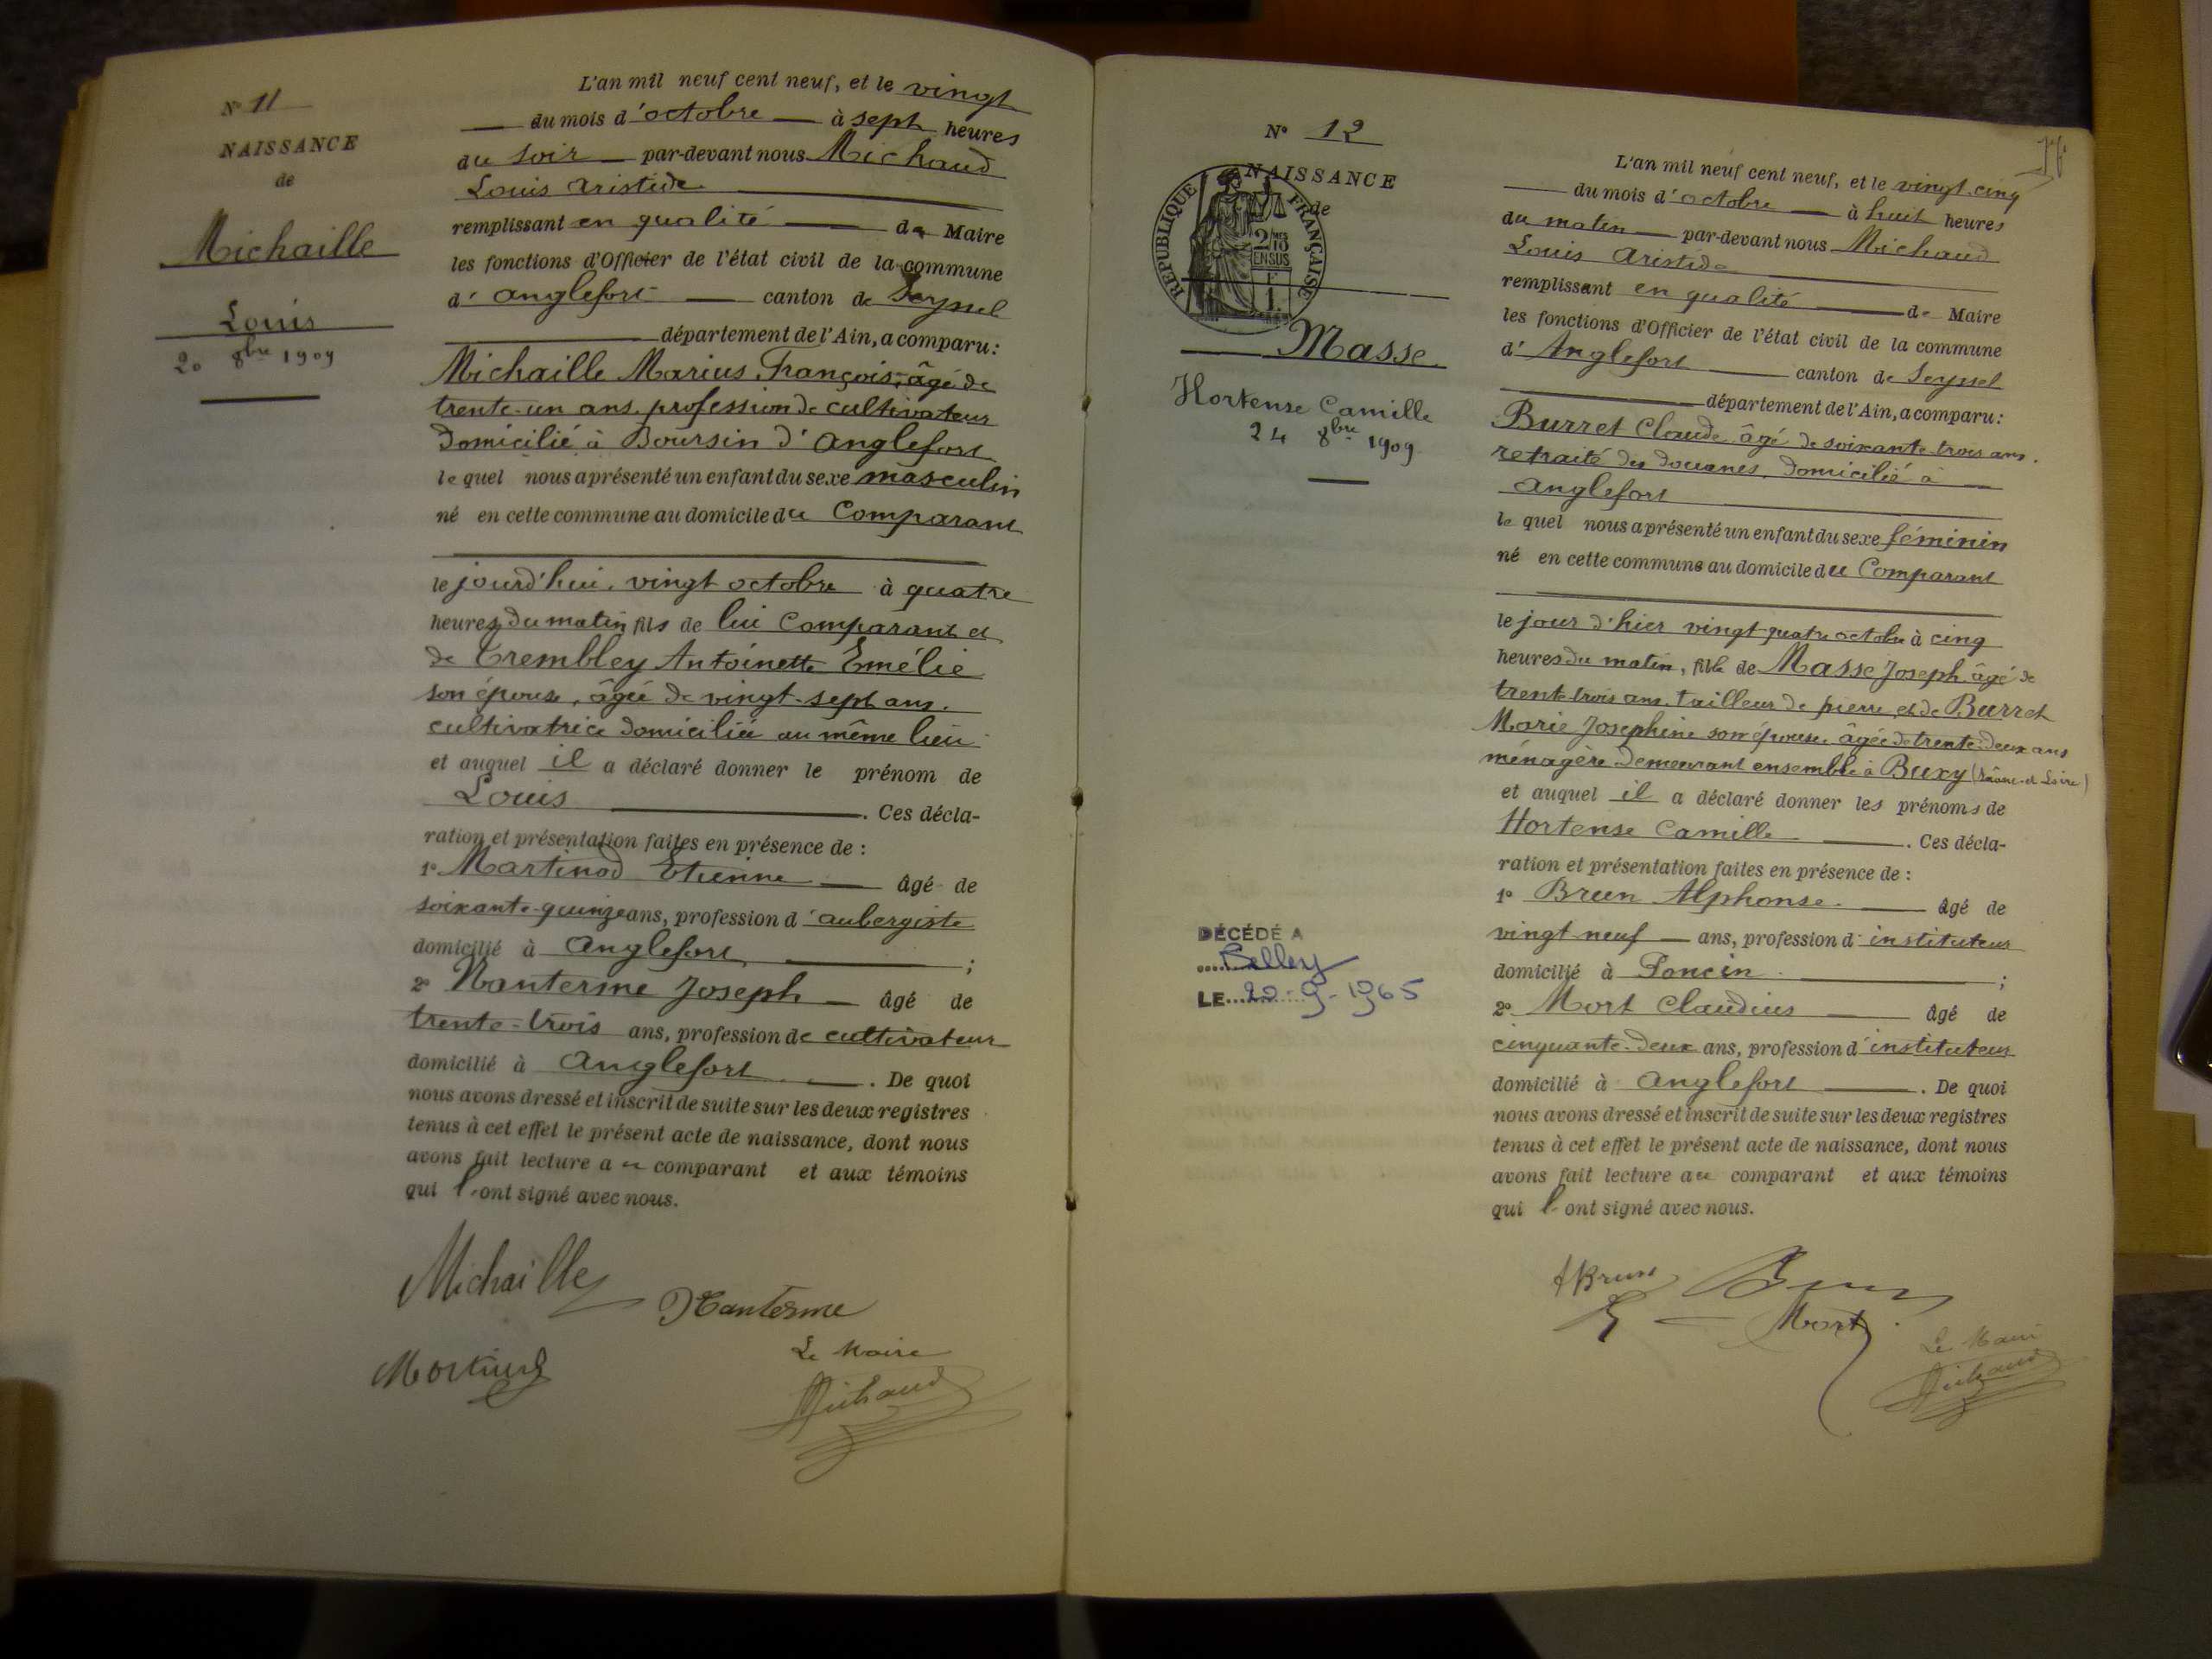 N° 11
NAISSANCE
de
Michaille
Louis
20 8bre 1909
L'an mil neuf cent neuf, et le vingt
du mois d'octobre à sept heures
du soir par-devant nous Michaud
Louis Aristide
remplissant en qualité de Maire
les fonctions d'Officier de l'état civil de la commune
d'Anglefort canton de Seyssel
département de l'Ain, a comparu :
Michaille Marius, François, âgé de
trente-un ans, profession de cultivateur
domicilié à Boursin d'Anglefort
lequel nous a présenté un enfant du sexe masculin
né en cette commune au domicile du Comparant
le jourd'hui, vingt octobre à quatre
heures du matin fils de lui Comparant et
de Trembley Antoinette Emélie
son épouse, âgée de vingt-sept ans.
cultivatrice domiciliée au même lieu
et auquel il a déclaré donner le prénom de
Louis . Ces décla-
ration et présentation faites en présence de :
1° Martinod Etienne âgé de
soixante-quinze ans, profession d'aubergiste
domicilié à Anglefort ;
2° Nanterme Joseph âgé de
trente-trois ans, profession de cultivateur
domicilié à Anglefort . De quoi
nous avons dressé et inscrit de suite sur les deux registres
tenus à cet effet le présent acte de naissance, dont nous
avons fait lecture au comparant et aux témoins
qui l'ont signé avec nous.
Michaille
Nanterme
Martinod
Le Maire
Michaud
N° 12
NAISSANCE
de
RÉPUBLIQUE FRANÇAISE
2/10
EN SUS
1F
Masse
Hortense Camille
24 8bre 1909
DÉCÉDÉ A
Belley
LE 20-9-1965
L'an mil neuf cent neuf, et le vingt-cinq
du mois d'octobre à huit heures
du matin par-devant nous Michaud
Louis Aristide
remplissant en qualité de Maire
les fonctions d'Officier de l'état civil de la commune
d'Anglefort canton de Seyssel
département de l'Ain, a comparu :
Burret Claude âgé de soixante-trois ans.
retraité des douanes, domicilié à
Anglefort
lequel nous a présenté un enfant du sexe féminin
né en cette commune au domicile du Comparant
le jour d'hier vingt-quatre octobre à cinq
heures du matin, fille de Masse Joseph âgé de
trente-trois ans, tailleur de pierre, et de Burret
Marie Josephine son épouse, âgée de trente-deux ans
ménagère demeurant ensemble à Buxy (Saône-et-Loire)
et auquel il a déclaré donner les prénoms de
Hortense Camille . Ces décla-
ration et présentation faites en présence de :
1° Brun Alphonse âgé de
vingt neuf ans, profession d'instituteur
domicilié à Poncin ;
2° Mort Claudius âgé de
cinquante-deux ans, profession d'instituteur
domicilié à Anglefort . De quoi
nous avons dressé et inscrit de suite sur les deux registres
tenus à cet effet le présent acte de naissance, dont nous
avons fait lecture au comparant et aux témoins
qui l'ont signé avec nous.
ABrun
Mort
Le Maire
Michaud